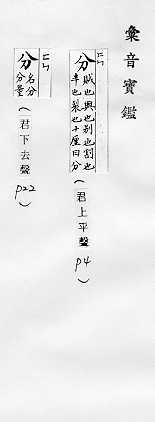 彙音寶鑑
ㄈㄣ
分 賦也與也別也割也
半也裂也十厘曰分
(君上平聲)
p4
ㄈㄣ
分 名分
分量
(君下去聲)
p22